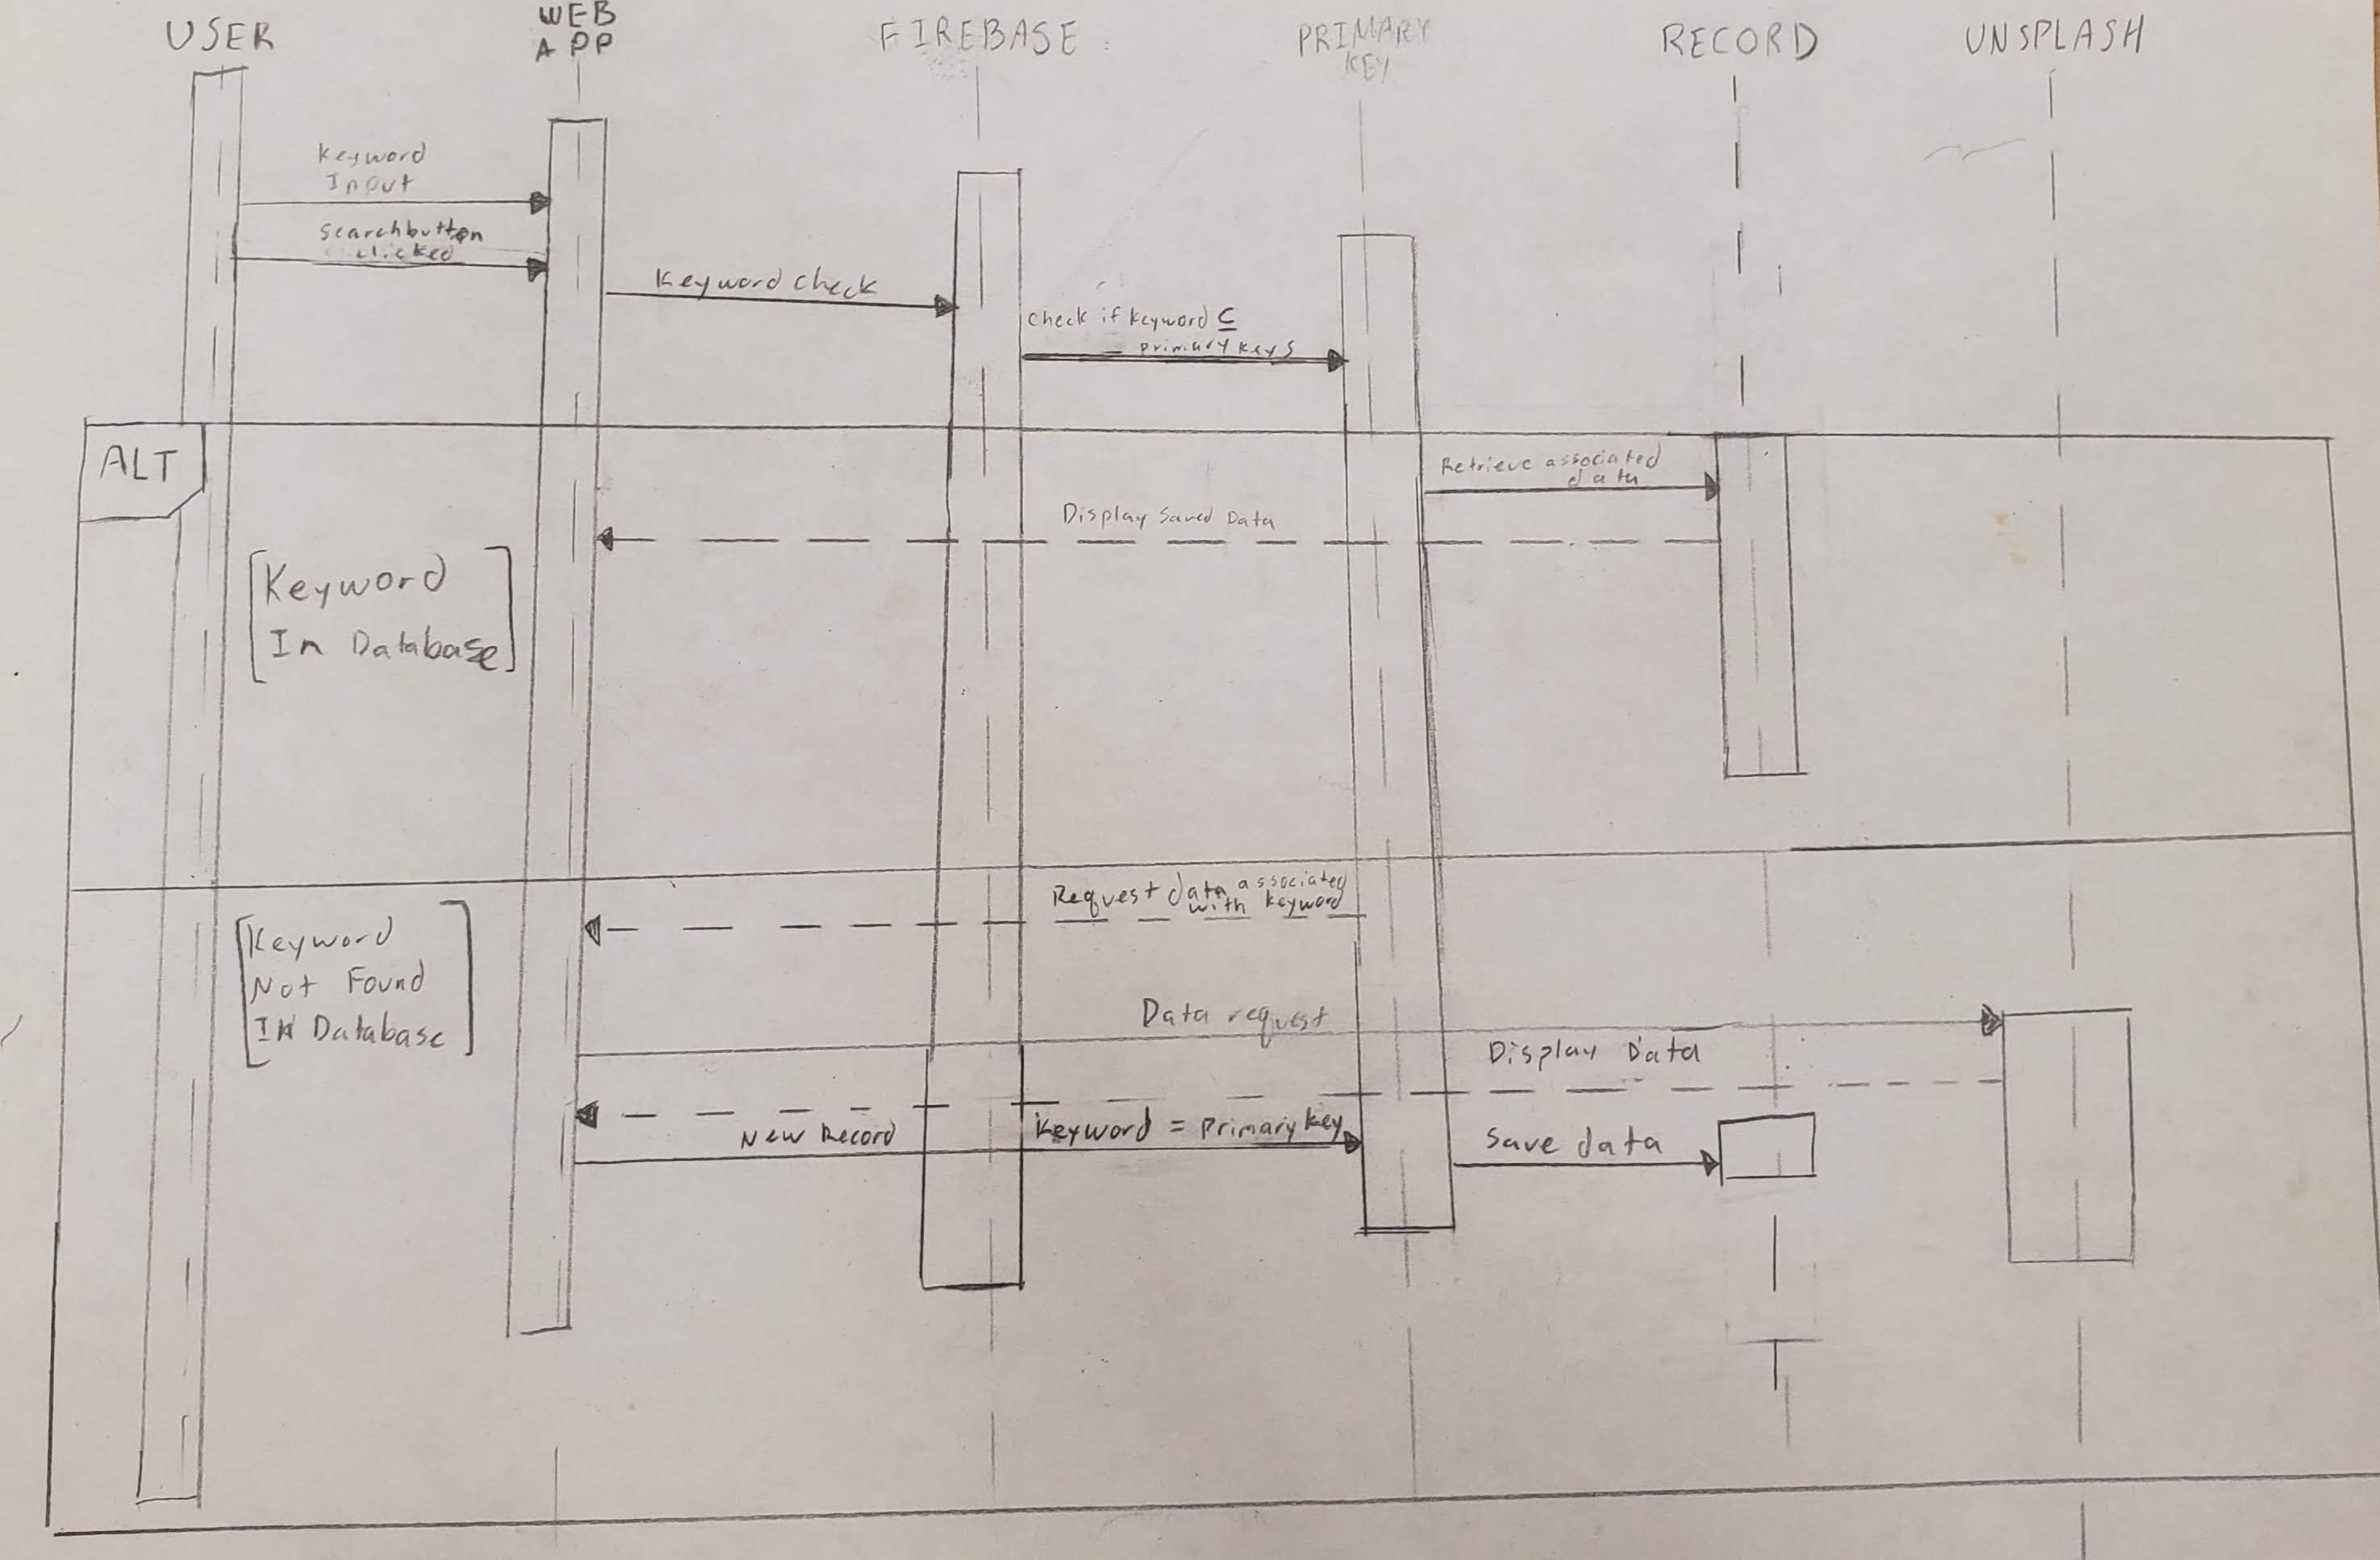 USER
WEB
APP
FIREBASE
PRIMARY
KEY
RECORD
UNSPLASH
Keyword
Input
Searchbutton
clicked
Keyword check
check if keyword ⊆
primary keys
ALT
Retrieve associated
data
Display Saved Data
[Keyword
In Database]
Request data associated
with keyword
[Keyword
Not Found
IN Database]
Data request
Display Data
New Record
Keyword = Primary key
Save data